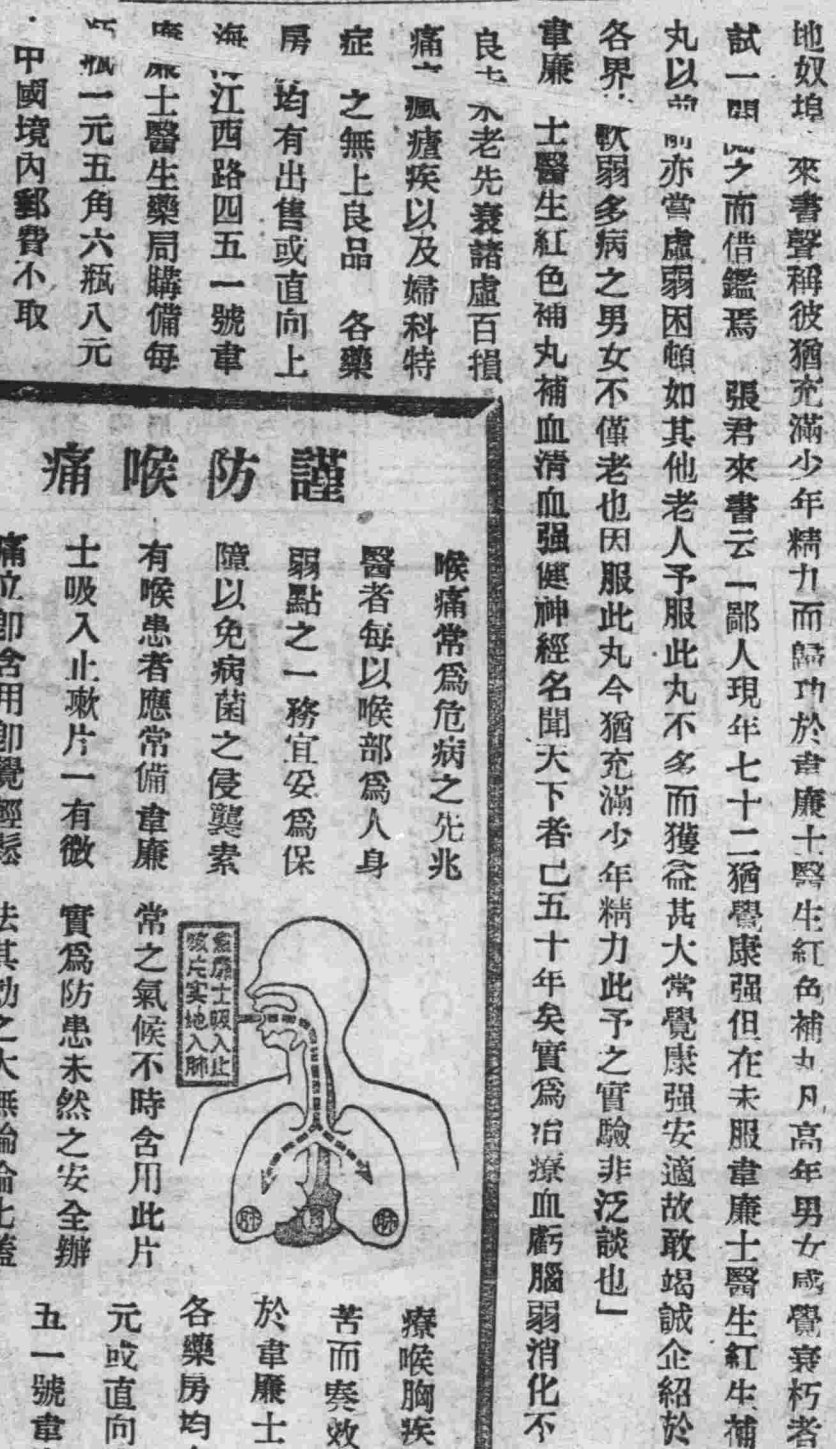 地奴埠 來書聲稱彼猶充滿少年精力而歸功於韋廉士醫生紅色補丸凡高年男女感覺衰朽者
試一閱 之而借鑑焉 張君來書云「鄙人現年七十二猶覺康强但在未服韋廉士醫生紅生補
丸以前 亦嘗虛弱困頓如其他老人予服此丸不多而獲益甚大常覺康强安適故敢竭誠企紹於
各界 軟弱多病之男女不僅老也因服此丸今猶充滿少年精力此予之實驗非泛談也」
韋廉 士醫生紅色補丸補血淸血强健神經名聞天下者已五十年矣實爲治療血虧腦弱消化不
良 未老先衰諸虛百損
痛 瘋瘧疾以及婦科特
症 之無上良品 各藥
房 均有出售或直向上
海 江西路四五一號韋
廉士醫生藥局購備每
瓶一元五角六瓶八元
中國境內郵費不取
謹防喉痛
喉痛常爲危病之先兆
醫者每以喉部爲人身
弱點之一務宜妥爲保
障以免病菌之侵襲素
有喉患者應常備韋廉
士吸入止嗽片一有微
痛立卽含用卽覺輕鬆
韋廉士吸入止
咳片实地入肺
肺
胃
肺
常之氣候不時含用此片
實爲防患未然之安全辦
法其功之大無論
療喉胸疾
苦而奏效
於韋廉士
各藥房均
元或直向
五一號韋